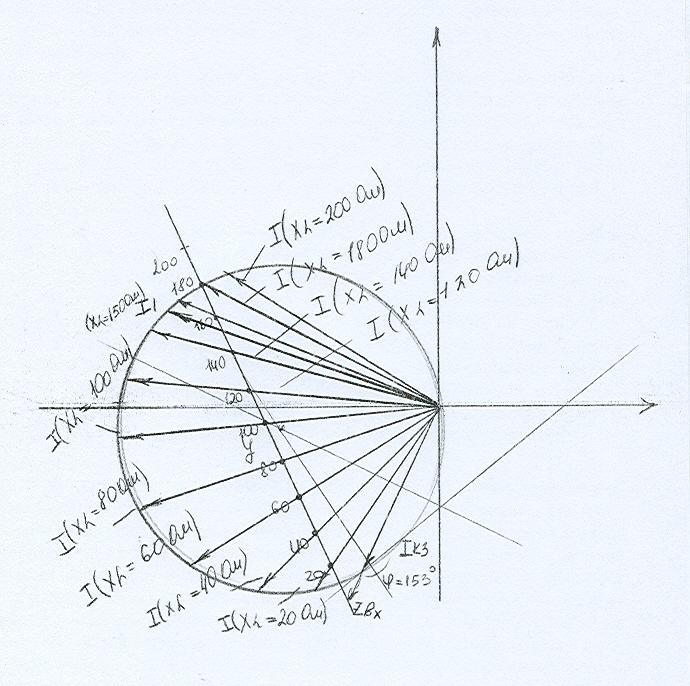 I(XL=200 Ом)
I(XL=180 Ом)
I(XL=140 Ом)
I(XL=120 Ом)
200
180
(XL=150 Ом)
I1
160
140
I(XL=100 Ом)
120
100
y
80
I(XL=80 Ом)
60
I(XL=60 Ом)
40
I(XL=40 Ом)
20
I(XL=20 Ом)
Iкз
φ=153°
Zвх